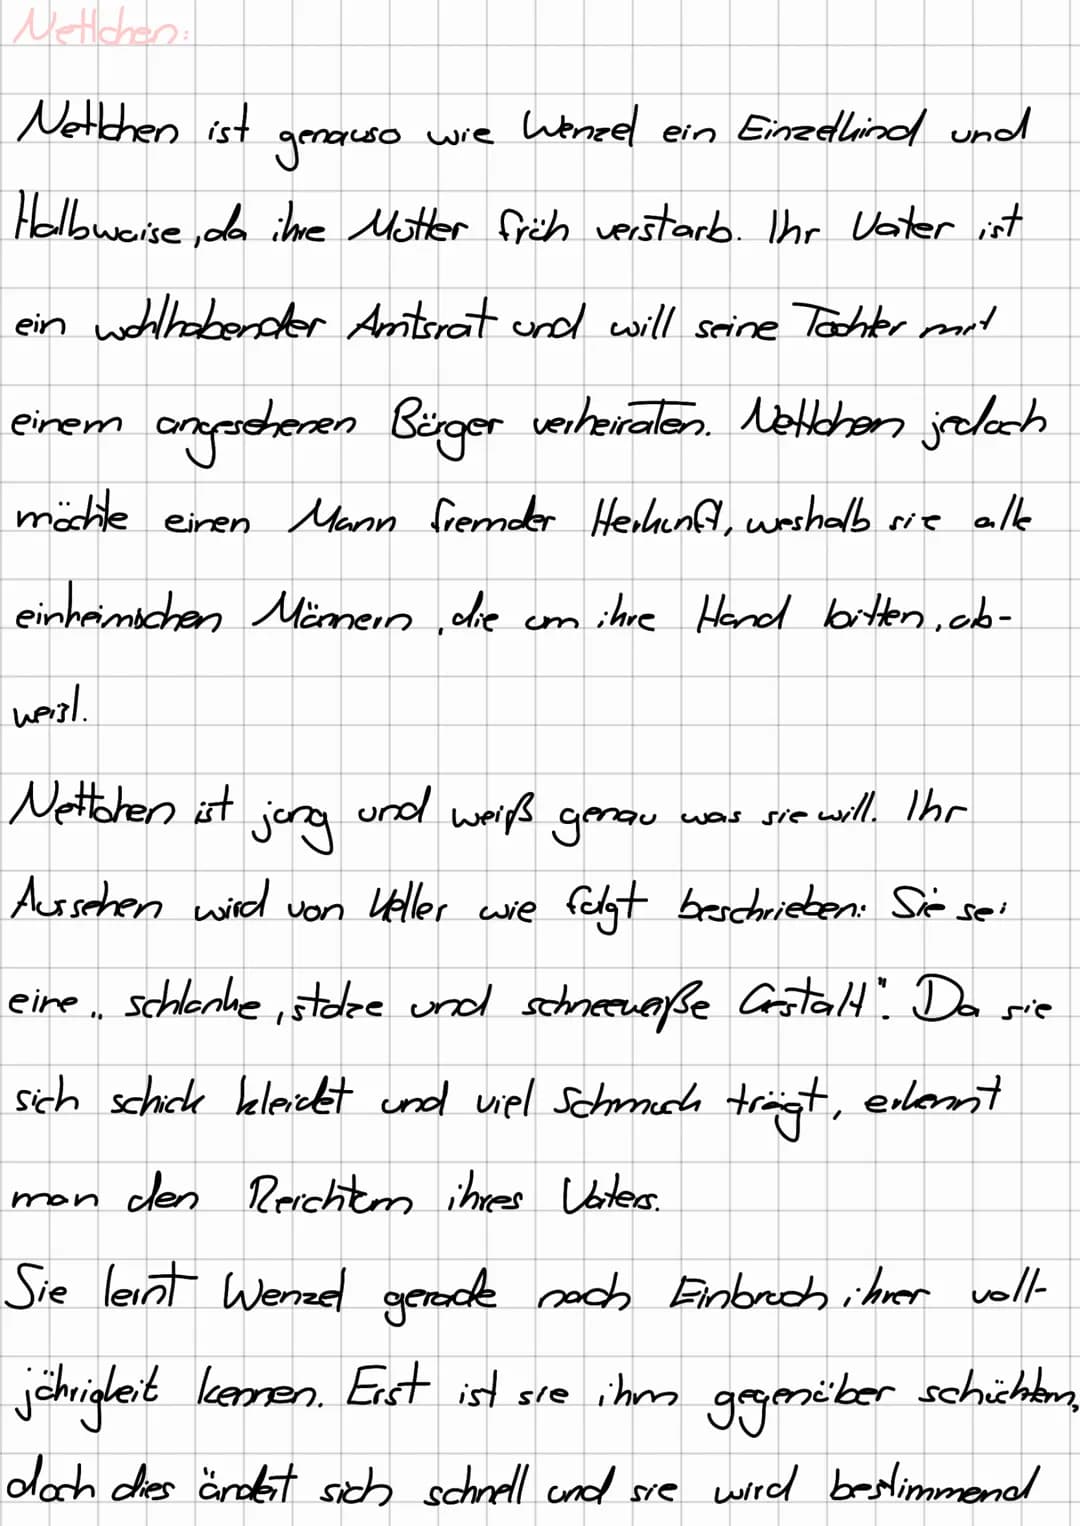 Nettchen:
Nettchen ist genauso wie Wenzel ein Einzelkind und
Halbwaise, da ihre Mutter früh verstarb. Ihr Vater ist
ein wohlhabender Amtsrat und will seine Tochter mit
einem angesehenen Bürger verheiraten. Nettchen jedoch
möchte einen Mann fremder Herkunft, weshalb sie alle
einheimischen Männern, die um ihre Hand bitten, ab-
weist.
Nettchen ist jung und weiß genau was sie will. Ihr
Aussehen wird von Keller wie folgt beschrieben: Sie sei
eine „schlanke, stolze und schneeweiße Gestalt". Da sie
sich schick kleidet und viel Schmuck trägt, erkennt
man den Reichtum ihres Vaters.
Sie lernt Wenzel gerade nach Einbruch ihrer voll-
jährigkeit kennen. Erst ist sie ihm gegenüber schüchtern,
doch dies ändert sich schnell und sie wird bestimmend